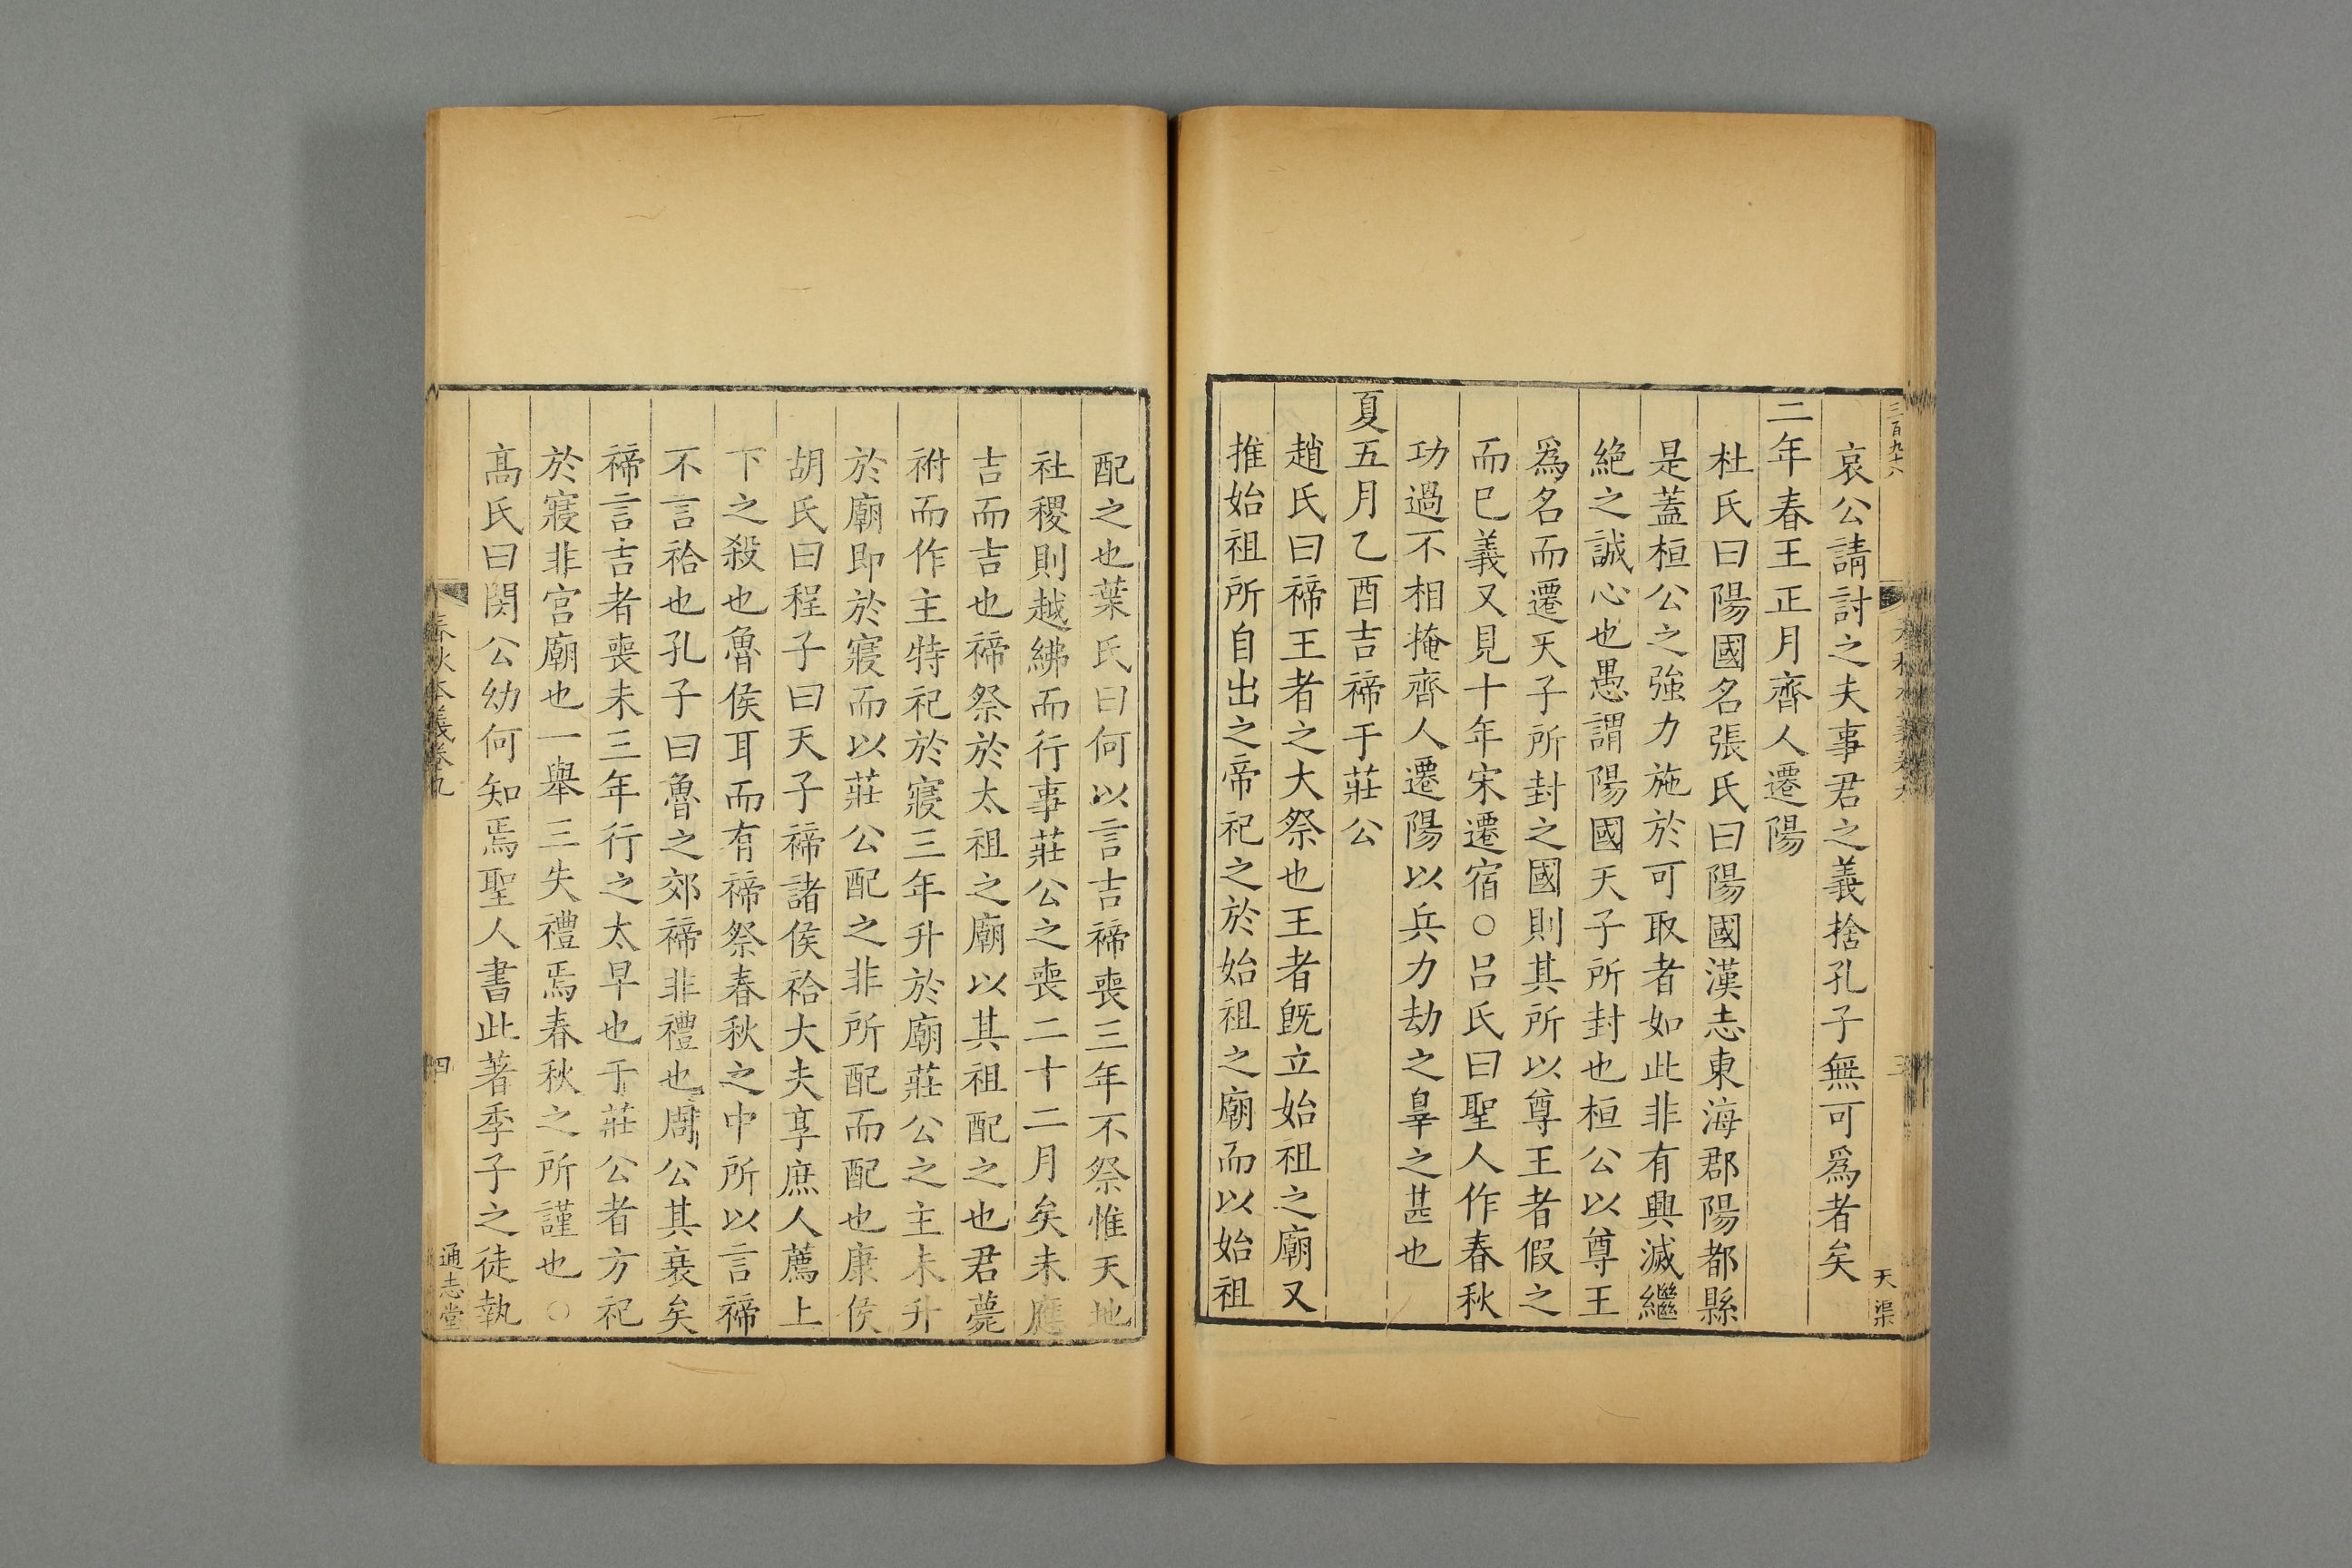 三百九十八
天渠
哀公請討之夫事君之義捨孔子無可爲者矣
二年春王正月齊人遷陽
杜氏曰陽國名張氏曰陽國漢志東海郡陽都縣
是蓋桓公之強力施於可取者如此非有興滅繼
絶之誠心也愚謂陽國天子所封也桓公以尊王
爲名而遷天子所封之國則其所以尊王者假之
而已義又見十年宋遷宿○呂氏曰聖人作春秋
功過不相掩齊人遷陽以兵力劫之辠之甚也
夏五月乙酉吉禘于莊公
趙氏曰禘王者之大祭也王者旣立始祖之廟又
推始祖所自出之帝祀之於始祖之廟而以始祖
配之也葉氏曰何以言吉禘喪三年不祭惟天地
社稷則越紼而行事莊公之喪二十二月矣未應
吉而吉也禘祭於太祖之廟以其祖配之也君薨
祔而作主特祀於寢三年升於廟莊公之主未升
於廟即於寢而以莊公配之非所配而配也康侯
胡氏曰程子曰天子禘諸侯祫大夫享庶人薦上
下之殺也魯侯耳而有禘祭春秋之中所以言禘
不言祫也孔子曰魯之郊禘非禮也周公其衰矣
禘言吉者喪未三年行之太早也于莊公者方祀
於寢非宫廟也一舉三失禮焉春秋之所謹也○
高氏曰閔公幼何知焉聖人書此著季子之徒執
春秋本義卷九
四
通志堂